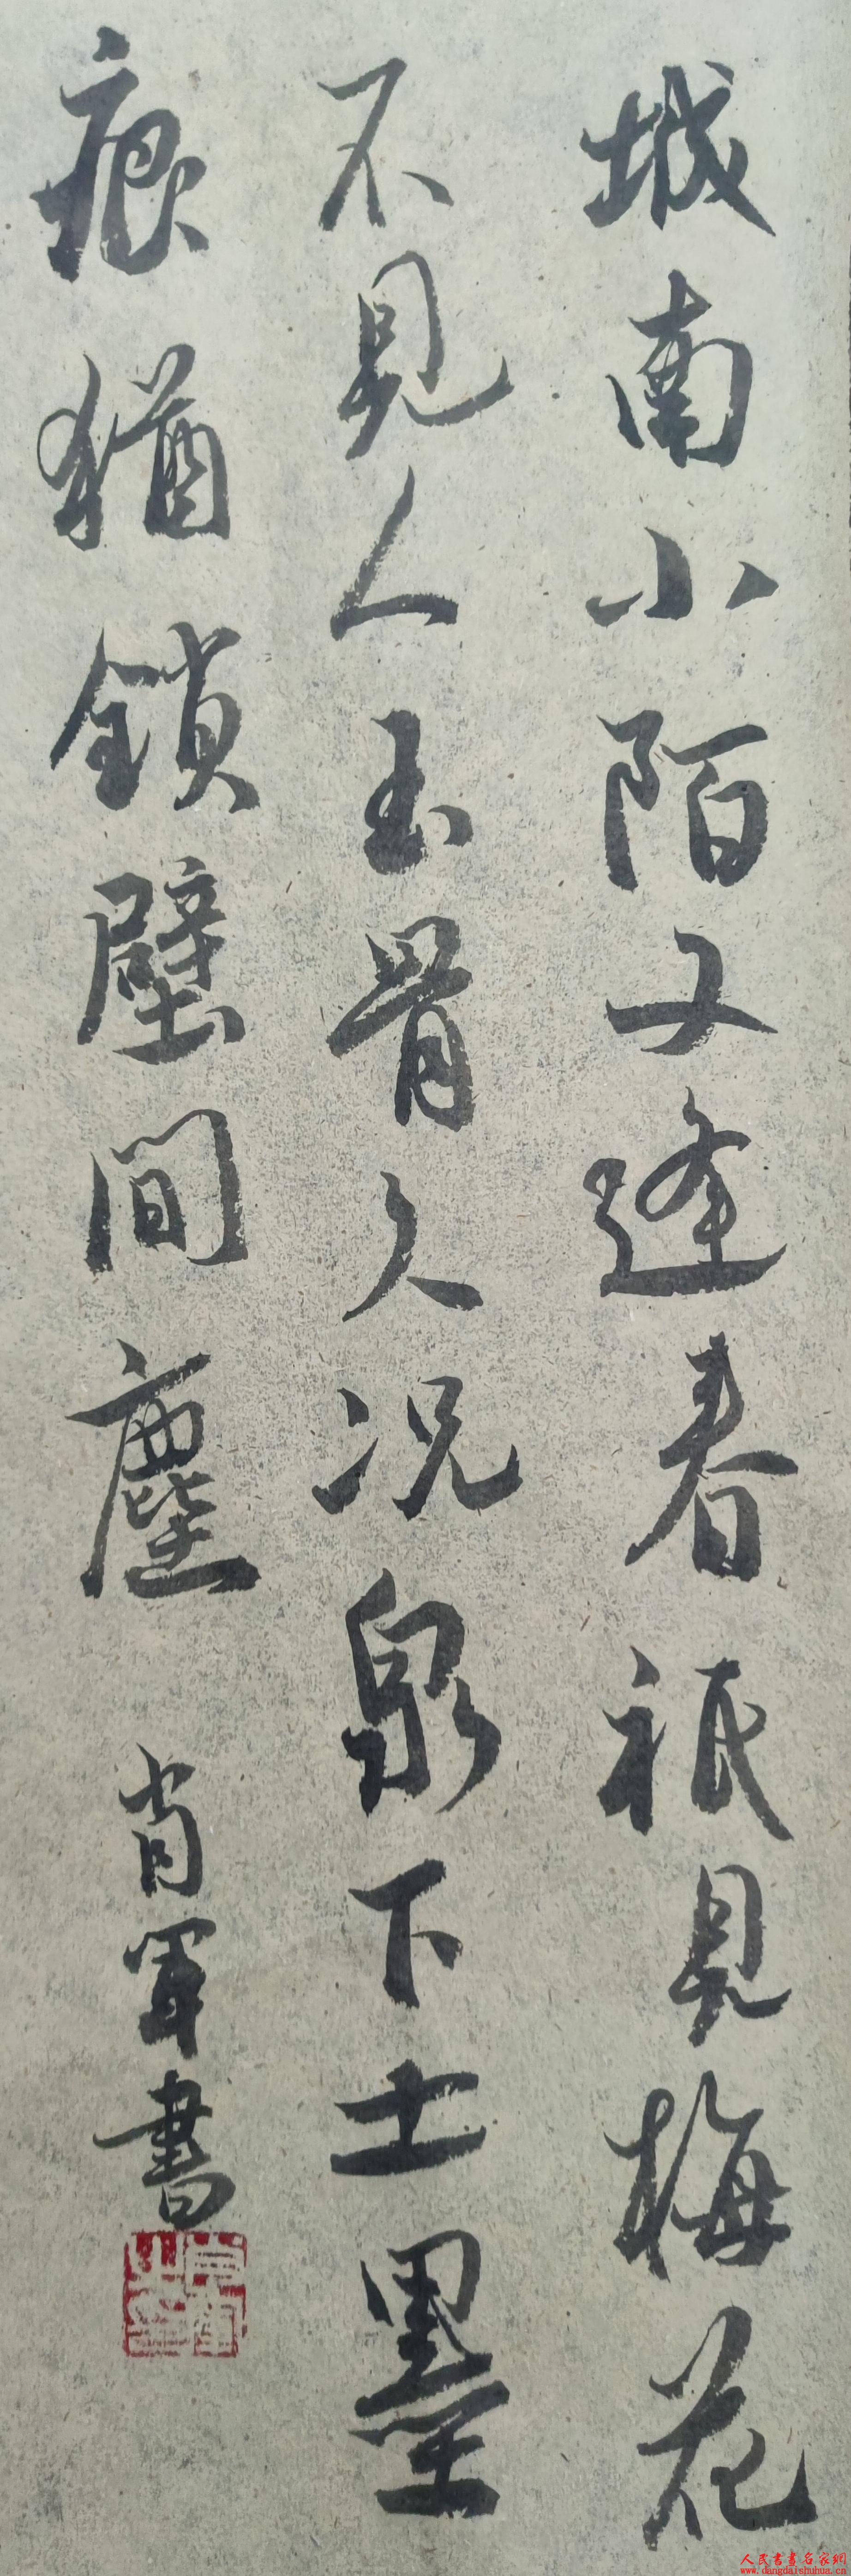 城南小陌又逢春祇見梅花
不見人玉骨久况泉下土墨
痕猶鎖壁間塵
肖軍書
人民書畫名家網
www.dangdaishuhua.cn